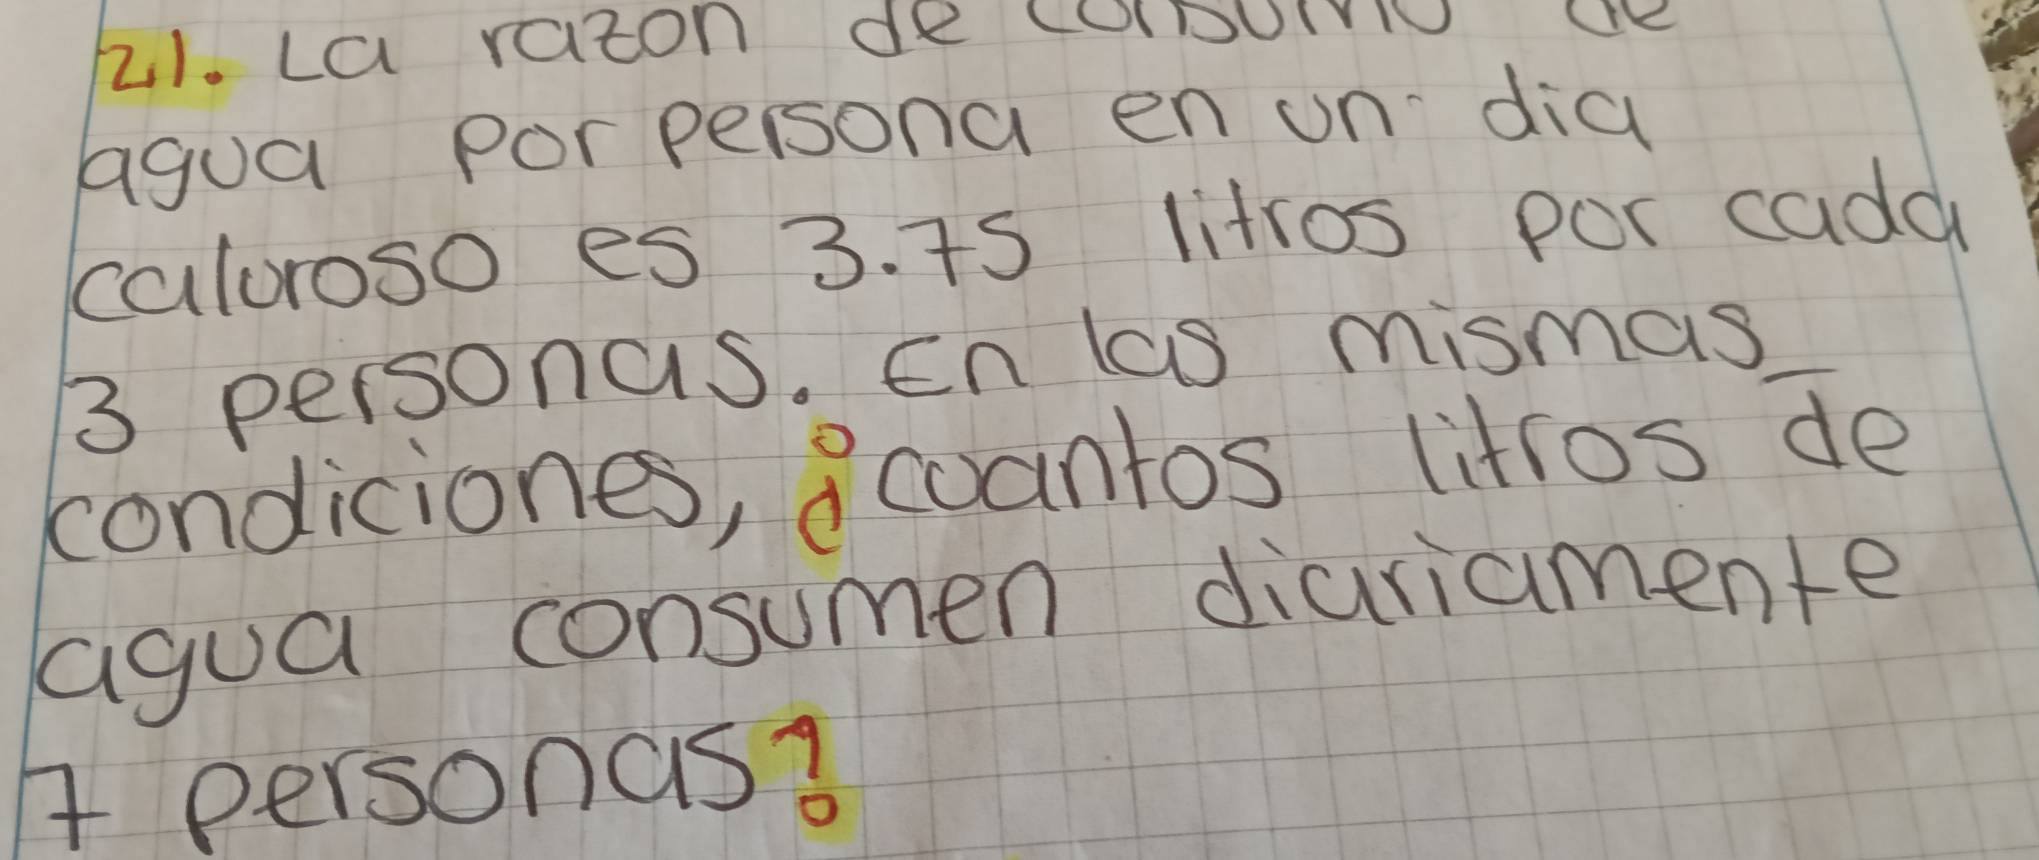 21. La razon de consumo de
agua por persona en un dia
caluroso es 3.75 litros por cada
3 personas. En las mismas_
condiciones, ¿cuantos litros de
agua consumen diariamente
7 personas?